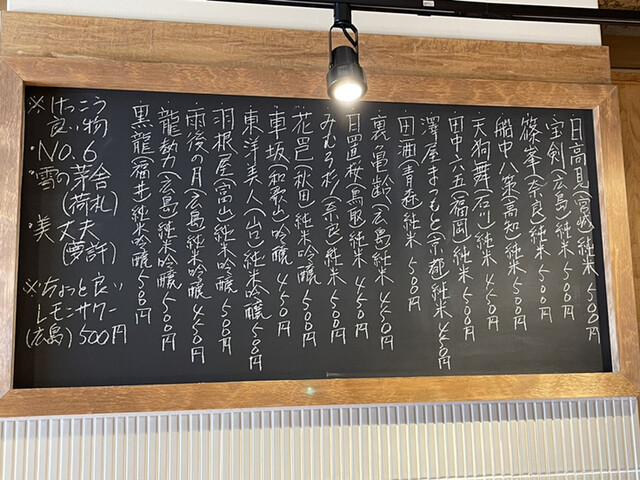 ・日高見(宮城)純米 500円
・宝剣(広島)純米 500円
・篠峯(奈良)純米 500円
・船中八策(高知)純米 500円
・天狗舞(石川)純米 450円
・田中六五(福岡)純米 500円
・澤屋まつもと(京都)純米 450円
・田酒(青森)純米 500円
・裏亀齢(広島)純米 450円
・日置桜(鳥取)純米 450円
・みむろ杉(奈良)純米 500円
・花邑(秋田)純米吟醸 500円
・車坂(和歌山)吟醸 450円
・東洋美人(山口)純米吟醸 500円
・羽根屋(富山)純米吟醸 500円
・雨後の月(広島)純米吟醸 450円
・龍勢力(広島)純米吟醸 500円
・黒龍(福井)純米吟醸 500円
※けっこう
良い物
・NO.6
・雪の茅舎
(荷札)
・美丈夫
(夢許)
※ちょっと良い
レモンサワー
(広島)500円